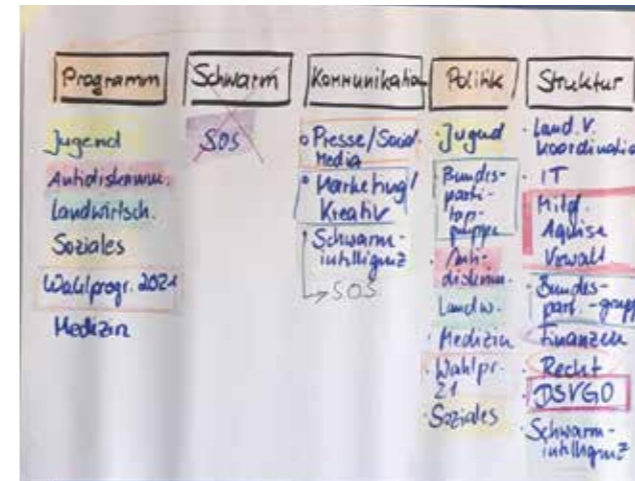 Programm
Jugend
Antidiskrimin.
Landwirtsch.
Soziales
Wahlprogr. 2021
Medizin
Schwarm
SOS
Kommunikatio
Presse/Social
Media
Marketing/
Kreativ
Schwarm-
intelligenz
SOS
Politik
Jugend
Bundes-
partei-
tag-
gruppe
Anti-
diskrim.
Landw.
Medizin
Wahlpr.
21
Soziales
Struktur
Land. V.
koordinatio
IT
Mitgl.
Aquise
Verwalt
Bundes-
part.-grupp
Finanzen
Recht
DSVGO
Schwarm-
intelligenz